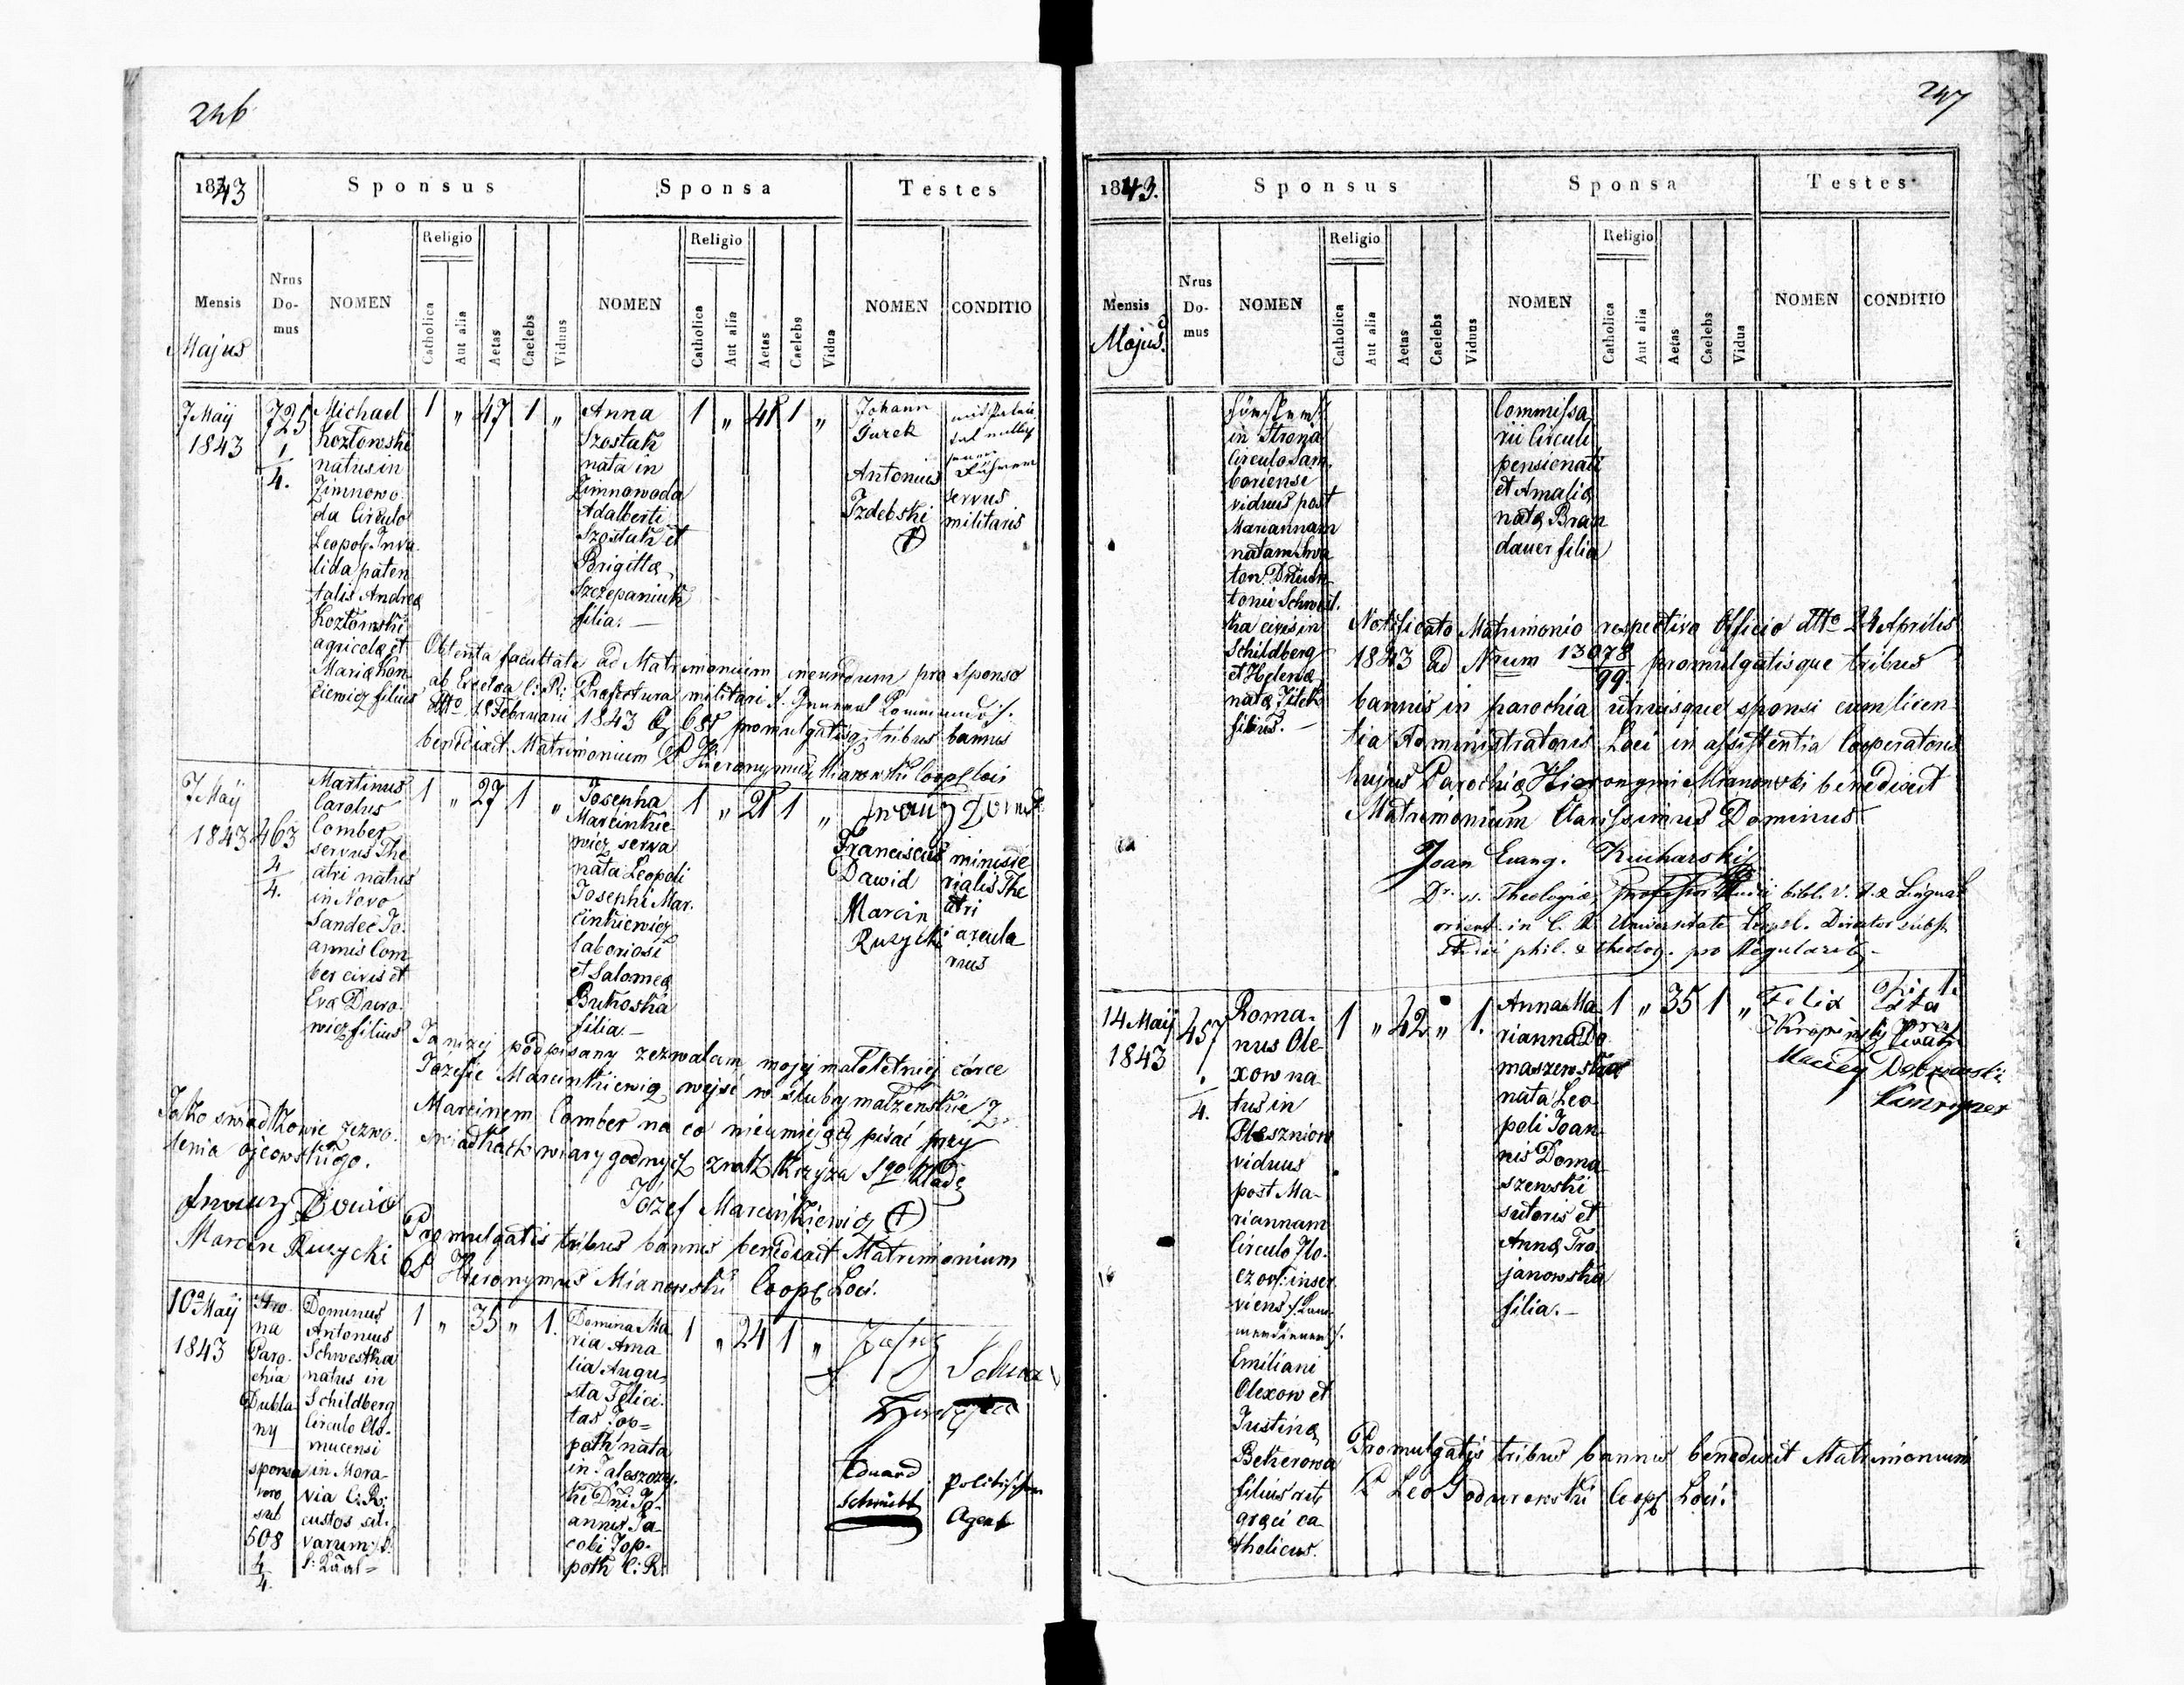 246
1843
Sponsus
Sponsa
Testes
Mensis
Majus
Nrus Do-mus
NOMEN
Religio
Catholica
Aut alia
Aetas
Caelebs
Viduus
NOMEN
Religio
Catholica
Aut alia
Aetas
Caelebs
Vidua
NOMEN
CONDITIO
7 Maij
1843
725
1/4.
Michael
Kozłowski
natus in
Zimnowo
da Circulo
Leopol. Inva
lida paten
talis Andreæ
Kozłowski
agricolæ et
Mariæ Kon
ciewicz filius
1 " 47 1 "
Anna
Szostak
nata in
Zimnowoda
Adalberti
Szostak et
Brigittæ
Szczepaniuk
filia. —
1 " 41 1 "
Johann
Turek
Antonius
Izdebski
(+)
servus
militaris
Obtenta facultate ad Matrimonium ineundum pro Sponso
ab Excelsa C: R: Præfectura militari /: General Commando :/
dtto 18 Februarii 1843 promulgatisq tribus bannis
benedixit Matrimonium P Hieronymus Mianowski Coop Loci
7 Maij
1843
463
4/4.
Martinus
Carolus
Comber
servus The
atri natus
in Novo
Sandec Jo.
annis Com
ber civis et
Eva Duro
wicz filius
1 " 27 1 "
Josepha
Marcinkie
wicz serva
nata Leopoli
Josephi Mar.
cinkiewicz
laboriosi
et Salomeæ
Bukoska
filia. —
1 " 21 1 "
Franciscus
Dawid
Marcin
Ruzycki
ministe
rialis The
atri
arcula
rius
Ja niżej podpisany zezwalam mojej małoletniej córce
Józefie Marcinkiewicz wejść w śluby małżeńskie z
Marcinem Comber na co nieumiejący pisać przy
świadkach wiary godnych znak Krzyża Sgo kładę
Józef Marcinkiewicz (+)
Jako świadkowie zezwo.
lenia ojcowskiego.
Marcin Ruzycki
Promulgatis tribus bannis benedixit Matrimonium
P Hieronymus Mianowski Coop Loci.
10a Maij
1843
Stro
na
Paro.
chia
Dubla
ny
sponsa
vero
sub
508
4/4.
Dominus
Antonius
Schwestka
natus in
Schildberg
Circulo Olo.
mucensi
in Mora
via C: R:
custos sil.
varum
1 " 35 " 1.
Domina Ma
ria Ama
lia Augu
sta Felici
tas Top=
poth nata
in Zaleszczy.
ki Dni Jo.
annis Ja
cobi Top.
poth C: R:
1 " 24 1 "
Eduard
Schmidt
Politischer
Agent
247
1843.
Sponsus
Sponsa
Testes
Mensis
Majus.
Nrus Do-mus
NOMEN
Religio
Catholica
Aut alia
Aetas
Caelebs
Viduus
NOMEN
Religio
Catholica
Aut alia
Aetas
Caelebs
Vidua
NOMEN
CONDITIO
in Strona
Circulo Sam.
boriensi
viduus post
Mariannam
natam
toni Schwest.
ka civis in
Schildberg
et Helenæ
natæ Titek
filius. —
Commissa
rii Circuli
pensionati
et Amaliæ
natæ Bran
dauer filia
Notificato Matrimonio respectivo Officio dtto 24 Aprilis
1843 ad Nrum 13078/99. promulgatisque tribus
bannis in parochia utriusque sponsi cum licen
tia Administratoris Loci in assistentia Cooperatoris
hujus Parochiæ Hieronymi Mianowski benedixit
Matrimonium Clarissimus Dominus
Joan Evang. Kucharski
Dr. ss. Theologiæ bibl. V. T. & Linguar
orient. in C. R. Universitate Leopol. Director subst
Studii phil. & theolog. pro Regularib. —
14 Maij
1843
457
1/4.
Roma.
nus Ole
xow na
tus in
Plesznion
viduus
post Ma-
riannam
Circulo Zło.
czov: inser
viens
Emiliani
Olexow et
Justinæ
Bekerowa
filius rit
græci ca
tholicus.
1 " 42 " 1.
Anna Ma
rianna Do
maszewska
nata Leo
poli Joan
nis Doma
szewski
sutoris et
Annæ Tro
janowska
filia. —
1 " 35 1 "
Felix
Kropiński
Maciey Dobrowolski
Promulgatis tribus bannis benedixit Matrimonium
P Leo Godurowski Coop Loci.